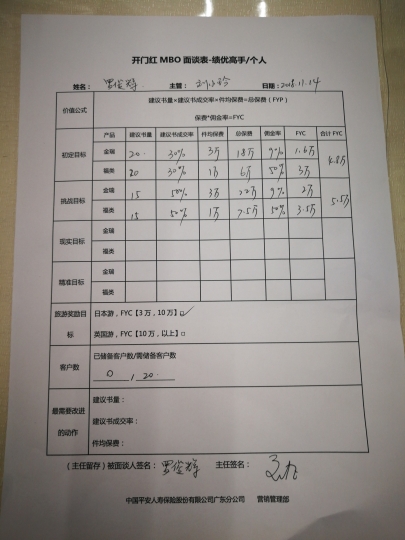 开门红 MBO 面谈表-绩优高手/个人
姓名： 主管： 日期：2018.11.14
价值公式
建议书量×建议书成交率=件均保费=总保费（FYP）
保费*佣金率=FYC
产品 建议书量 建议书成交率 件均保费 总保费 佣金率 FYC 合计 FYC
初定目标 金瑞 20. 30% 3万 18万 9% 1.6万 4.8万
福类 20 30% 1万 6万 50% 3万
挑战目标 金瑞 15 50% 3万 22万 9% 2万 5.5万
福类 15 50% 1万 7.5万 50% 3.5万
现实目标 金瑞
福类
精准目标 金瑞
福类
旅游奖励目标
日本游，FYC【3万，10万】☑
英国游，FYC【10万，以上】□
客户数
已储备客户数/需储备客户数
0 / 20.
最需要改进的动作
建议书量：
建议书成交率：
件均保费：
（主任留存）被面谈人签名： 主任签名：
中国平安人寿保险股份有限公司广东分公司 营销管理部